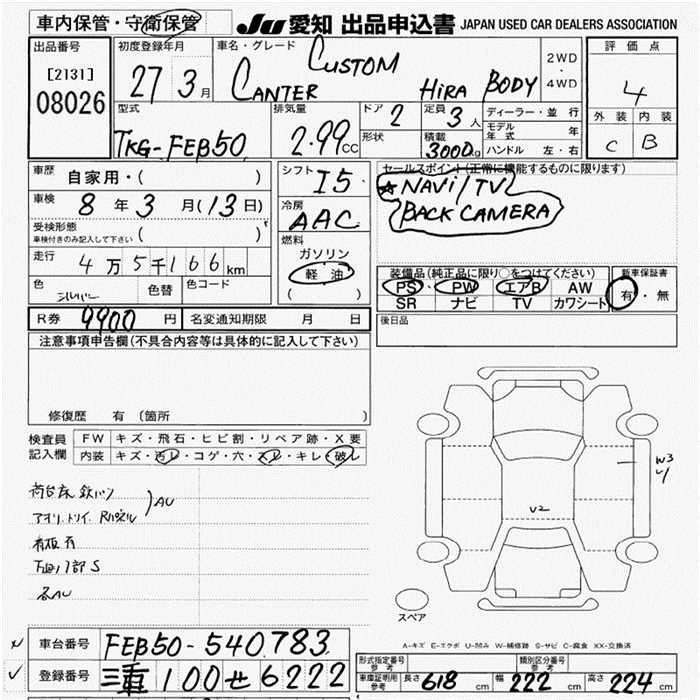 車内保管・守衛保管
JU 愛知 出品申込書 JAPAN USED CAR DEALERS ASSOCIATION
出品番号
[2131]
08026
初度登録年月
27年3月
車名・グレード
CUSTOM
CANTER HIRA BODY
2WD
・
4WD
評価点
4
外装 内装
C B
型式
TKG-FEB50
排気量
2.99cc
ドア
2
定員
3人
形状
積載
3000kg
ディーラー・並行
モデル年式 年
ハンドル 左・右
車歴
自家用・( )
車検
8年3月(13日)
受検形態
車検付きのみ記入して下さい ( )
走行
4万5千166km
色
シルバー
色替
色コード
シフト
I5
冷房
AAC
燃料
ガソリン
軽油
( )
セールスポイント(正常に機能するものに限ります)
☆NAVI/TV
BACK CAMERA
装備品(純正品に限り○をつけてください)
PS・PW エアB AW
SR ナビ TV カワシート
新車保証書
有・無
R券 9900円 名変通知期限 月 日
後日品
注意事項申告欄(不具合内容等は具体的に記入して下さい)
修復歴 有 (箇所 )
検査員記入欄
FW キズ・飛石・ヒビ割・リペア跡・X要
内装 キズ・汚レ・コゲ・穴・スレ・キレ・破レ
AU
各AU
W3
U2
スペア
A-キズ E-エクボ U-凹み W-補修跡 S-サビ C-腐食 XX-交換済
車台番号 FEB50-540783
登録番号 三重 100 せ 6222
形式指定番号
参考
類別区分番号
参考
車庫証明用
参考
長さ 618cm 幅 222cm 高さ 224cm